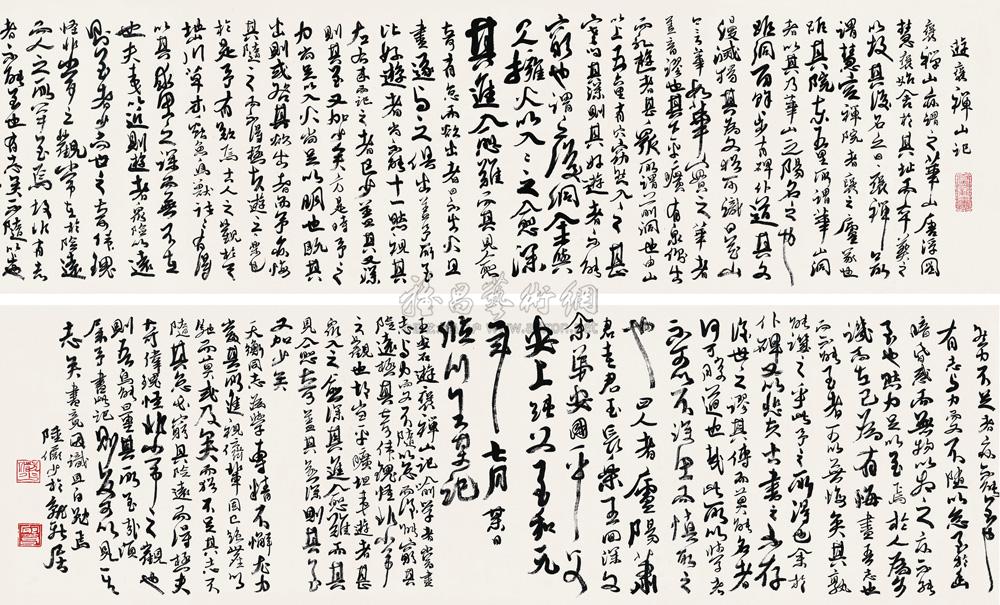 遊褒禪山記
褒禪山亦謂之華山唐浮圖
慧褒始舍於其址而卒葬之
以故其後名之曰褒禪今所
謂慧空禪院者褒之廬冢也
距其院東五里所謂華山洞
者以其乃華山之陽名之也
距洞百餘步有碑仆道其文
漫滅獨其為文猶可識曰花山
今言華如華實之華者
蓋音謬也其下平曠有泉側出
而記遊者甚眾所謂前洞也由山
以上五六里有穴窈然入之甚
寒問其深則其好遊者不能
窮也謂之後洞余與
四人擁火以入入之愈深
其進愈難而其見愈
奇有怠而欲出者曰不出火且
盡遂與之俱出蓋予所至
比好遊者尚不能十一然視其
左右來而記之者已少蓋其又深
則其至又加少矣方是時予之
力尚足以入火尚足以明也既其
出則或咎其欲出者而予亦悔
其隨之而不得極夫遊之樂也
於是予有歎焉古人之觀於天
地山川草木蟲魚鳥獸往往有得
以其求思之深而無不在
也夫夷以近則遊者眾險以遠
則至者少而世之奇偉瑰
怪非常之觀常在於險遠
而人之所罕至焉故非有志
者不能至也有志矣不隨以止也
然力不足者亦不能至也
有志與力而又不隨以怠至於幽
暗昏惑而無物以相之亦不能
至也然力足以至焉於人為可
譏而在己為有悔盡吾志也
而不能至者可以無悔矣其孰
能譏之乎此予之所得也余於
仆碑又以悲夫古書之不存
後世之謬其傳而莫能名者
何可勝道也哉此所以學者
不可以不深思而慎取之
也四人者廬陽蕭
君圭君玉長樂王回深父
余弟安國平父
安上純父至和元
年七月某日
臨川王某記
王安石遊褒禪山記喻學者要盡
志與力而又不隨以怠而得以窮其
險遠極其奇偉瑰怪非常
之觀也故知平曠坦途遊者甚
眾入之愈深其進愈難而其
見愈奇蓋其又深則其至
又加少矣
天衡同志為學專精不懈志力
則
志矣書竟因識且自勉焉
陸儼少於